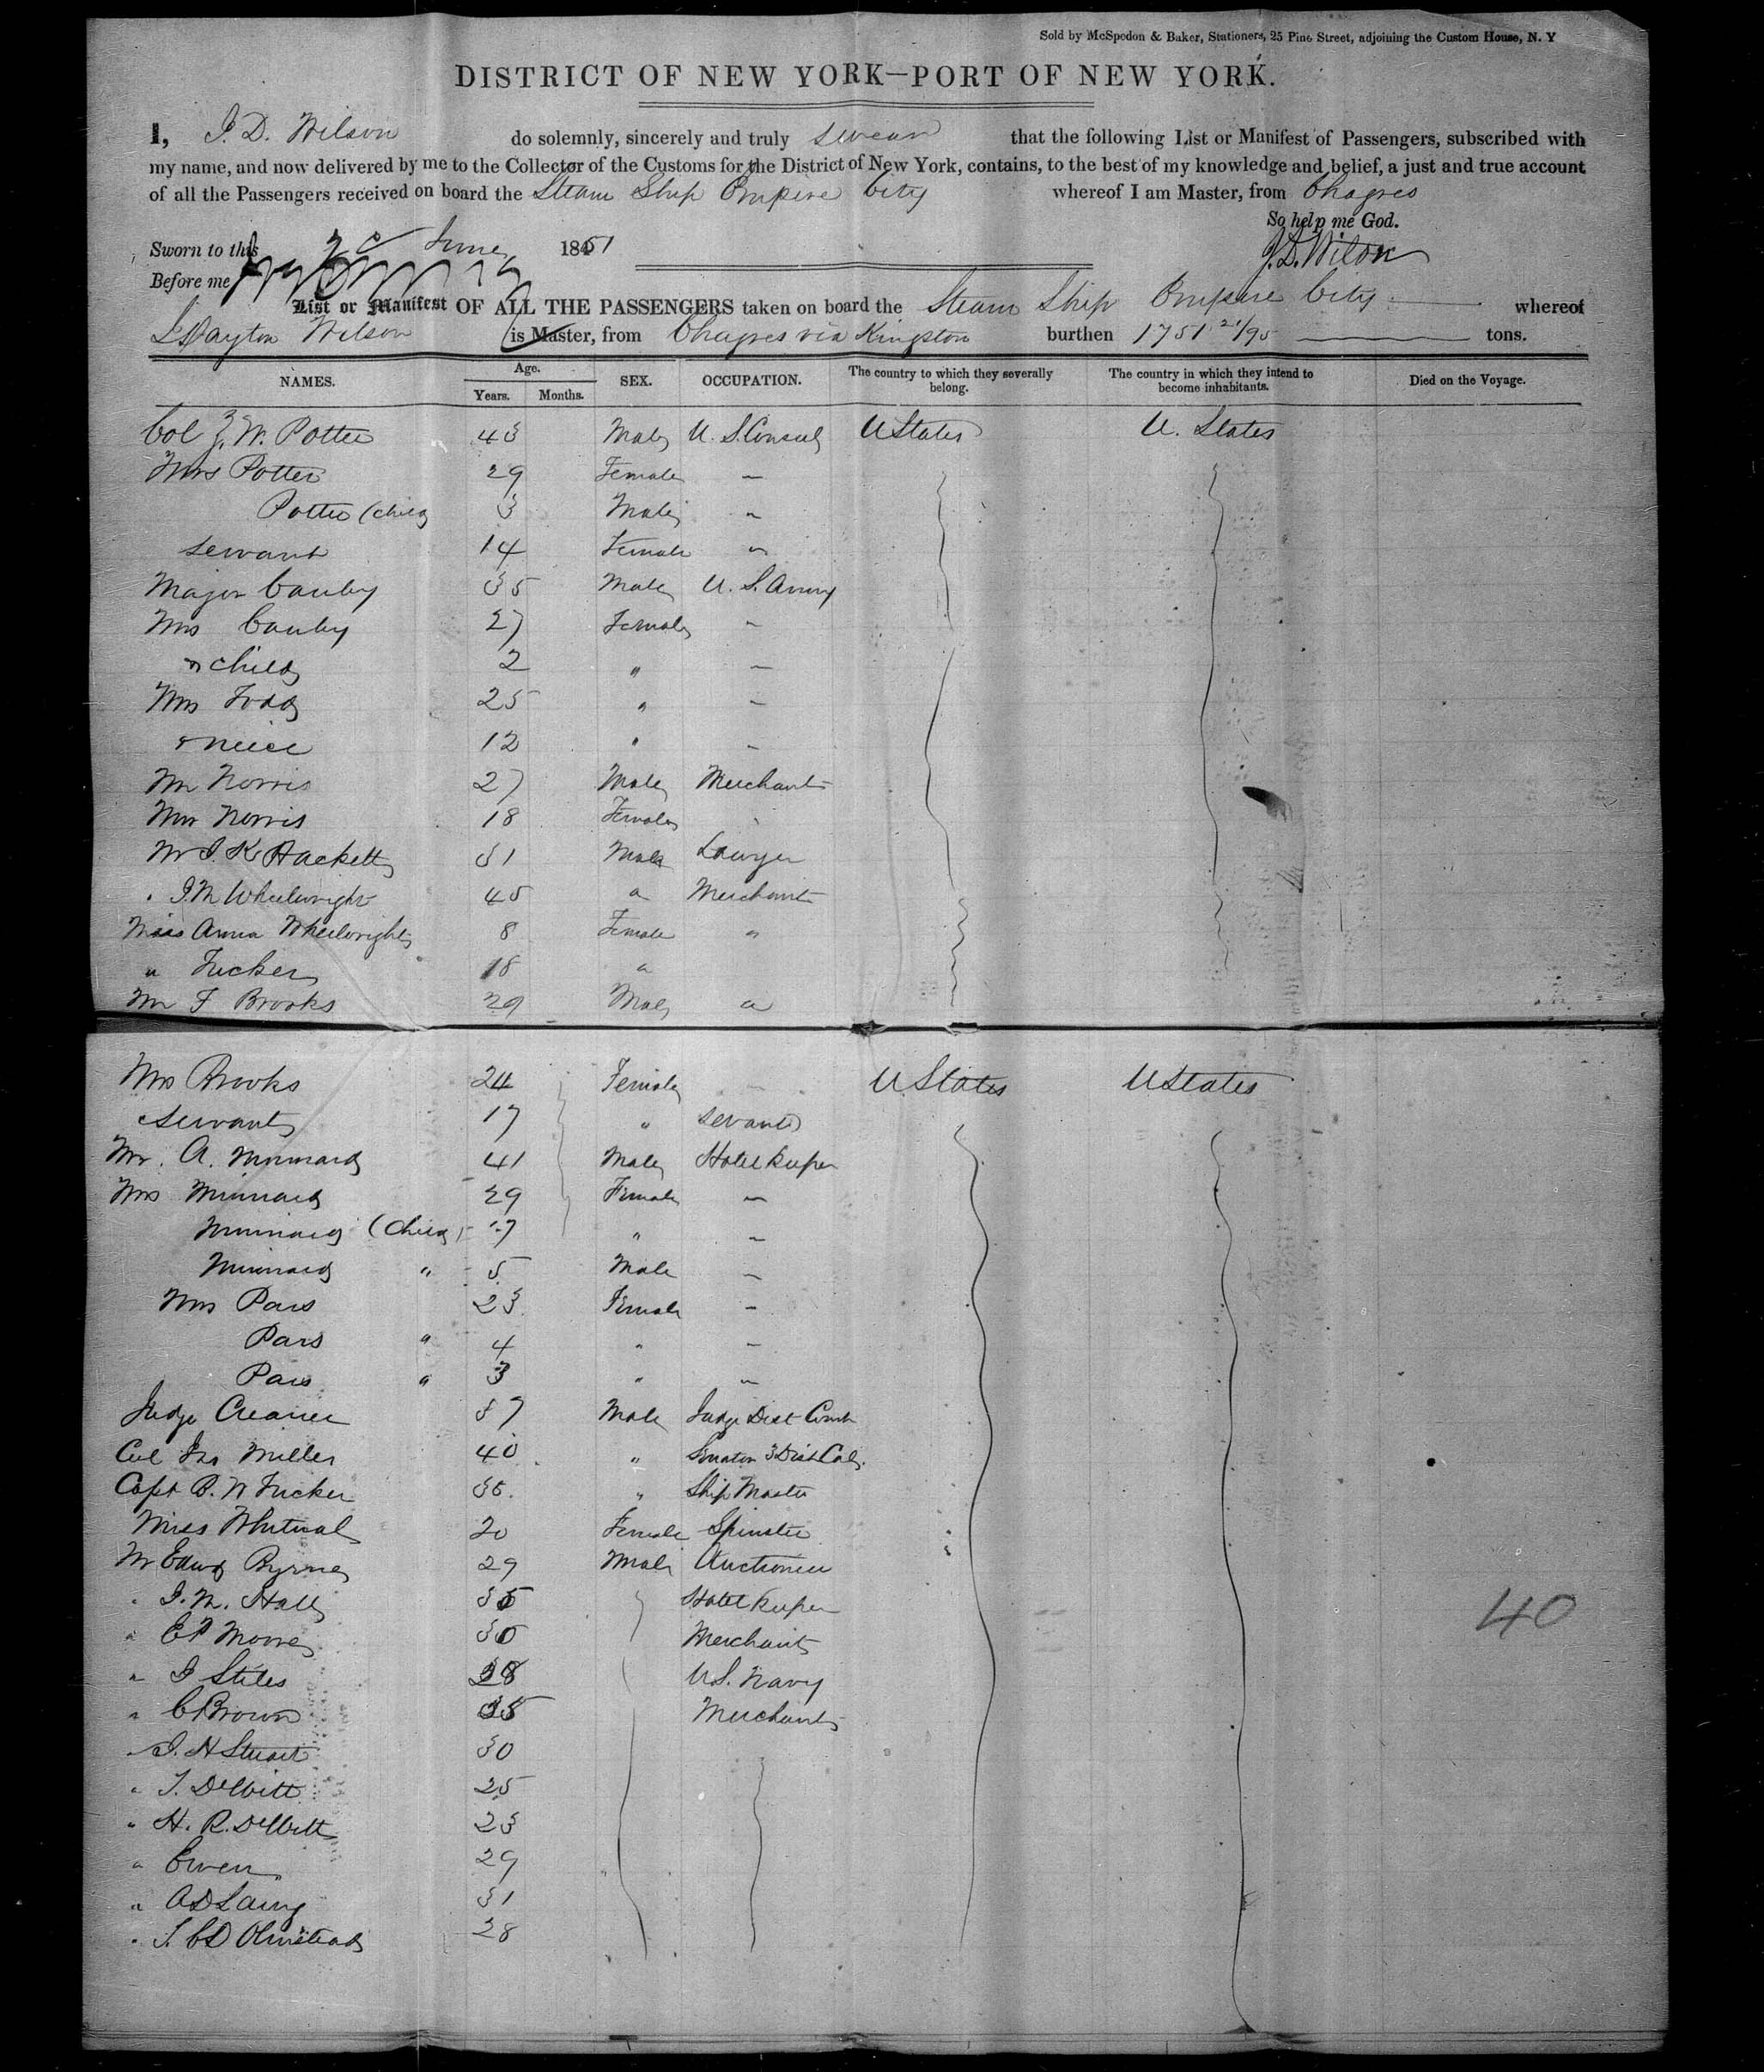 Sold by McSpedon & Baker, Stationers, 25 Pine Street, adjoining the Custom House, N. Y
DISTRICT OF NEW YORK—PORT OF NEW YORK.
I, J. D. Wilson do solemnly, sincerely and truly swear that the following List or Manifest of Passengers, subscribed with
my name, and now delivered by me to the Collector of the Customs for the District of New York, contains, to the best of my knowledge and belief, a just and true account
of all the Passengers received on board the Steam Ship Empire City whereof I am Master, from Chagres
So help me God.
Sworn to this June 1851
J. D. Wilson
Before me
List or Manifest OF ALL THE PASSENGERS taken on board the Steam Ship Empire City whereof
Dayton Wilson is Master, from Chagres via Kingston burthen 1751 21/95 tons.
NAMES. Age. Years. Months. SEX. OCCUPATION. The country to which they severally belong. The country in which they intend to become inhabitants. Died on the Voyage.
Col J. W. Potter 43 Male U. S. Consul U States U. States
Mrs Potter 29 Female —
Potter (child 3 Male "
servant 14 Female "
Major Canby 35 Male U. S. Army
Mrs Canby 27 Female "
" child 2 " —
Mrs Todd 25 " —
" neice 12 " —
Mr Norris 27 Male Merchant
Mrs Norris 18 Female
Mr J. K. Hackett 31 Male Lawyer
" J. M Wheelwright 45 " Merchant
Miss Anna Wheelwright 8 Female "
" Tucker 18 "
Mr F Brooks 29 Male "
Mrs Brooks 24 Female — U States U States
servant 17 " servant
Mr. A. Minnard 41 Male Hotel keeper
Mrs Minnard 29 Female —
Minnard (Child) 7 " —
Minnard " 5 Male —
Mrs Pars 23 Female —
Pars " 4 " —
Pars " 3 " —
Judge Creaner 37 Male Judge Dist Court
Col Jno Miller 40 " Senator 3 Dist Cal.
Capt B. W Tucker 36. " Ship Master
Miss Whitual 20 Female Spinster
Mr Edwd Byrne 29 Male Auctioneer
" J. M. Hall 35 Hotel keeper
" E P Moore 30 Merchant
40
" J Stiles 38 U.S. Navy
" C Brown 35 Merchant
" J. H Stuart 30
" T. DeWitt 25
" H. R. DeWitt 23
" Ewen 29
" A D Laing 31
" T. C D Olmstead 28